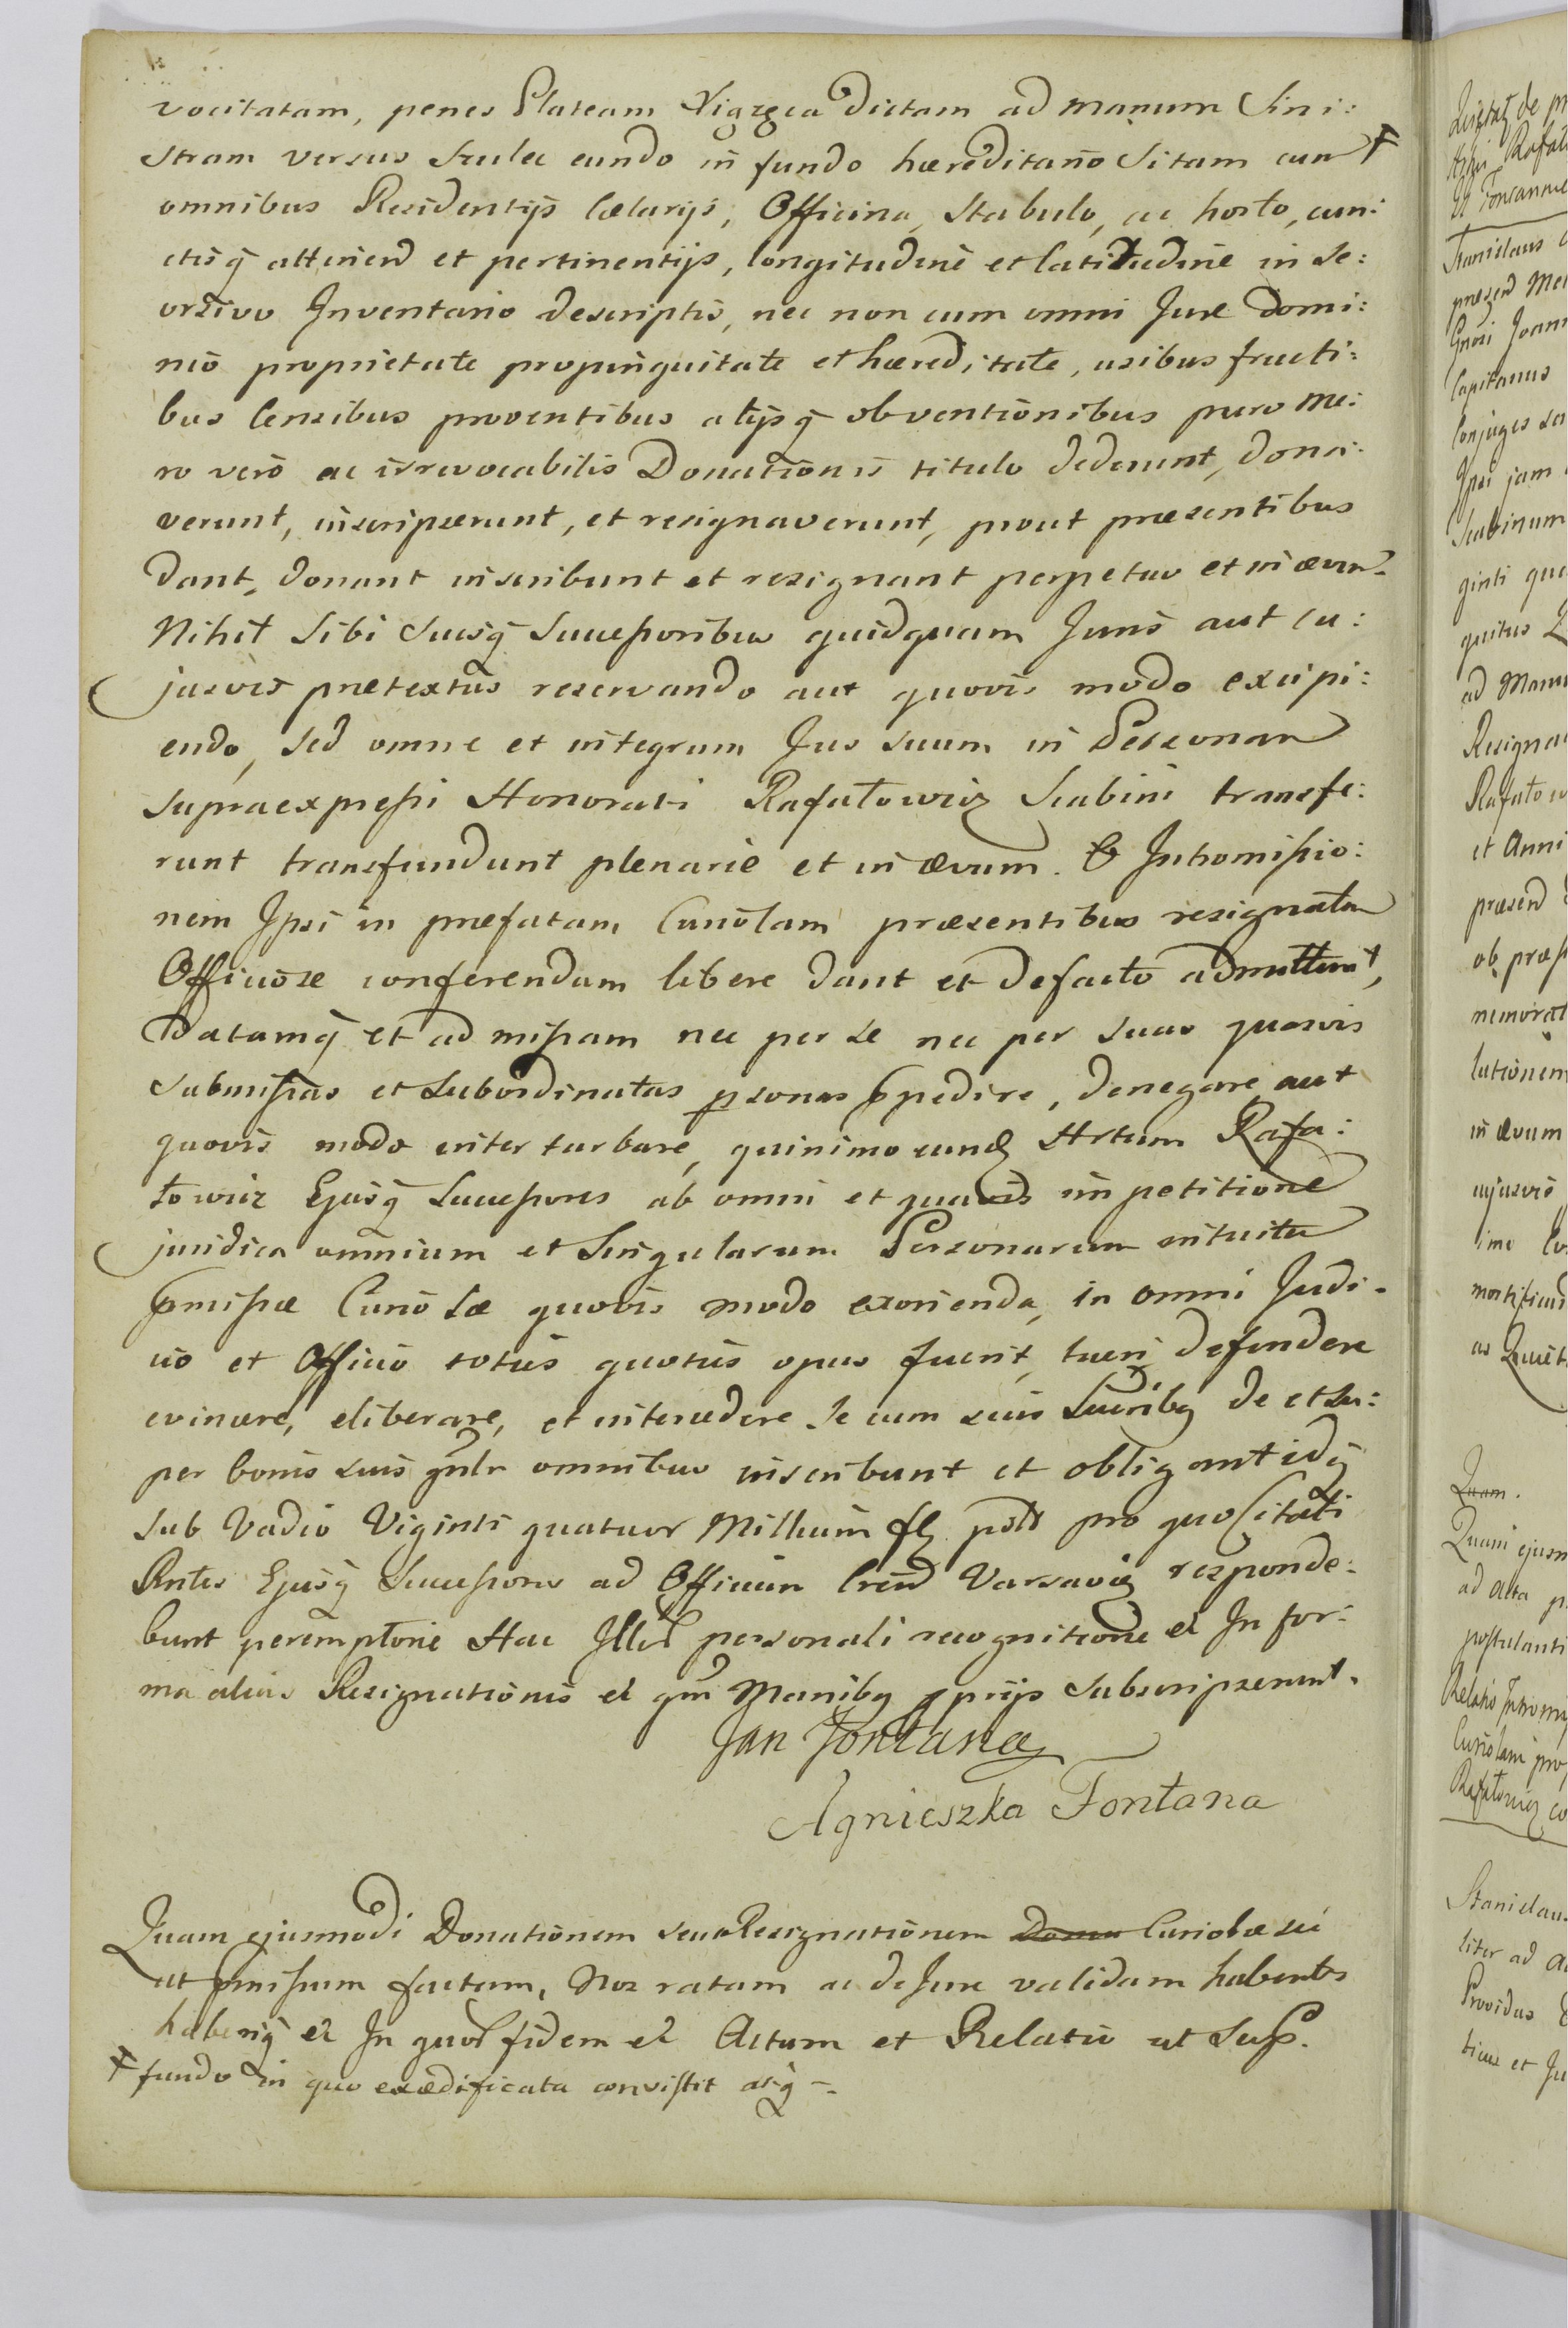 vocitatam, penes Plateam Xiązęca dictam ad manum Sini:
stram versus Szulec eundo in fundo hæreditario Sitam cum ✗
omnibus Residentijs Cælarijs, Officina, Stabulo, ac horto, cun:
ctisq attinend et pertinentijs, longitudine et latitudine in Se:
orsivo Inventario descriptis, nec non cum omni Jure Domi:
nio proprietate propinquitate et hæreditate, usibus fructi:
bus Censibus proventibus alijsq obventionibus puro me:
ro vero ac irrevocabilis Donationis titulo dederunt, dona:
verunt, inscripserunt, et resignaverunt, prout præsentibus
dant, donant inscribunt et resignant perpetuo et in ævum.
Nihil Sibi Suisq Successoribus quidquam Juris aut cu:
jusvis prætextus reservando aut quovis modo excipi:
endo, Sed omne et integrum Jus suum in Personam
supraexpressi Honorati Rafałowicz Scabini transfe:
runt transfundunt plenarie et in ævum. & Intromissio:
nem Ipsi in præfatam Curiolam præsentibus resignatam
Officiose conferendam libere dant et defacto admittunt,
Datamq et admissam nec per se nec per suas quasvis
submissas et Subordinatas psonas ppedire, denegare aut
quovis modo inter turbare, quinimo eund Hrtum Rafa:
łowicz Ejusq Successores ab omni et quavis impetitione
juridica omnium et Singularum Personarum intuitu
pmissæ Curiolæ quovis modo exorienda, in omni Judi-
cio et Officio toties quoties opus fuerit, tueri defendere
evincere, eliberare, et intercedere Se cum suis Succriby de et Su:
per bonis suis gnlr omnibus inscribunt et obligant idq
sub Vadio Viginti quatuor Millium fl. poll pro quo Citati
Rntes Ejusq Successores ad Officium Crend Varsaviæ responde:
bunt peremptorie Hac personali recognitione et In for:
ma alias Resignationis et Maniby ppriis subscripserunt.
Jan Fontana
Agnieszka Fontana
Quam ejusmodi Donationem seu Resignationem Curiolæ sic
ut pmissum factam, Nos ratam ac de Jure validam habentes
haberiq et In quor fidem et Actum et Relatio ut Sup.
✗ fundo in quo exædificata consistit atq -.
Stanislaus
Capitaneus
Conjuges
Ipsi jam
Scabinum
ginti
ad Manu
in ævum
Quam.
ad Acta
Providus